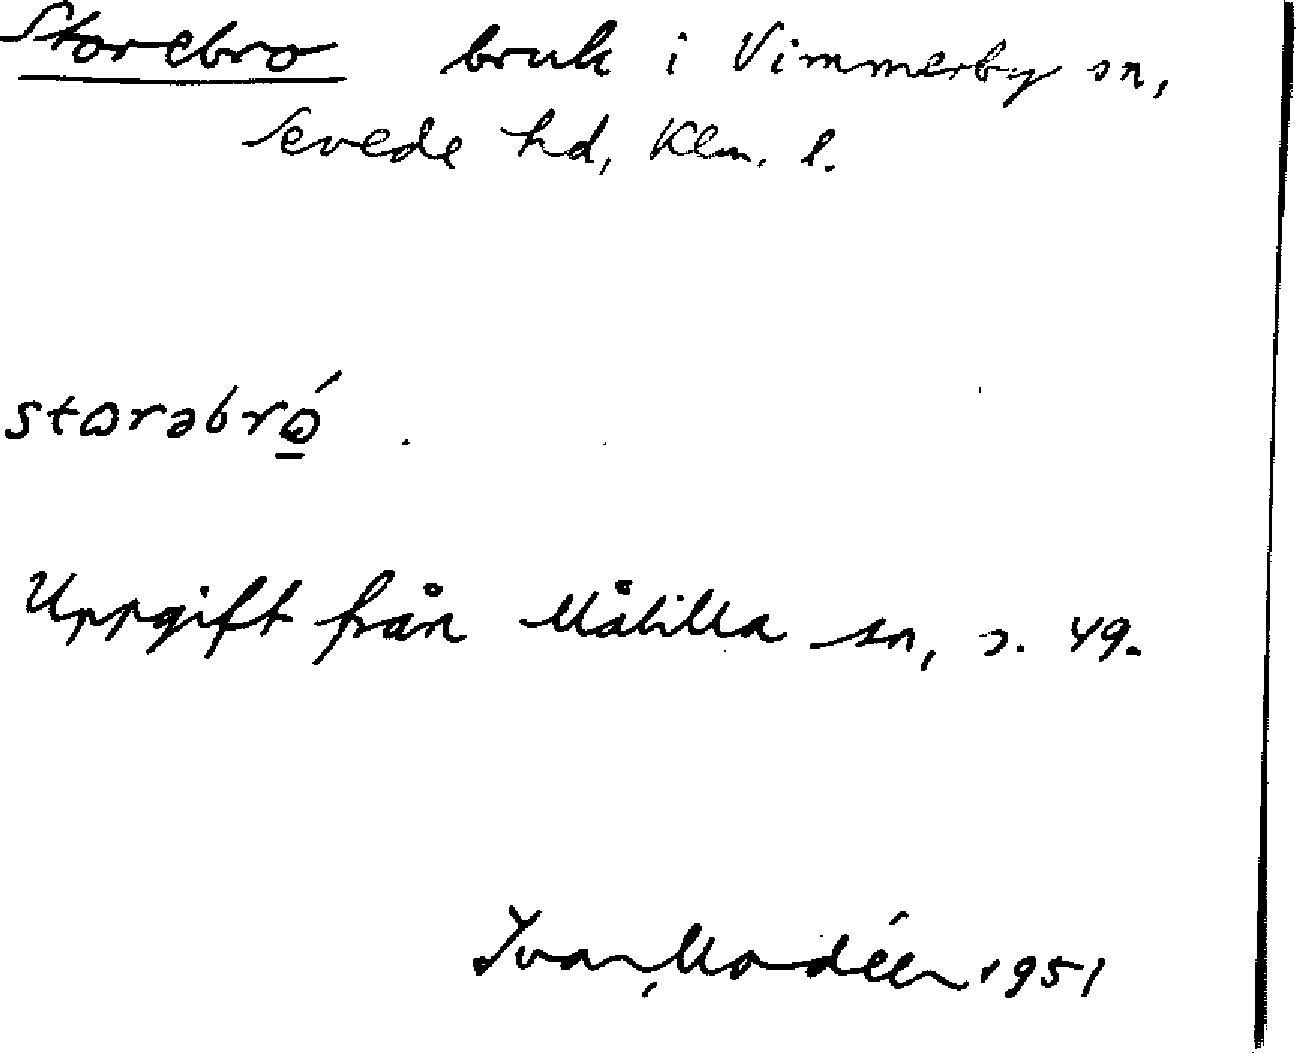 Storebro bruk i Vimmerby sn,
Sevede hd, Klm. l.
stɷrəbrɷ̱́.
Uppgift från Målilla sn, s. 49.
Ivar Modéer 1951